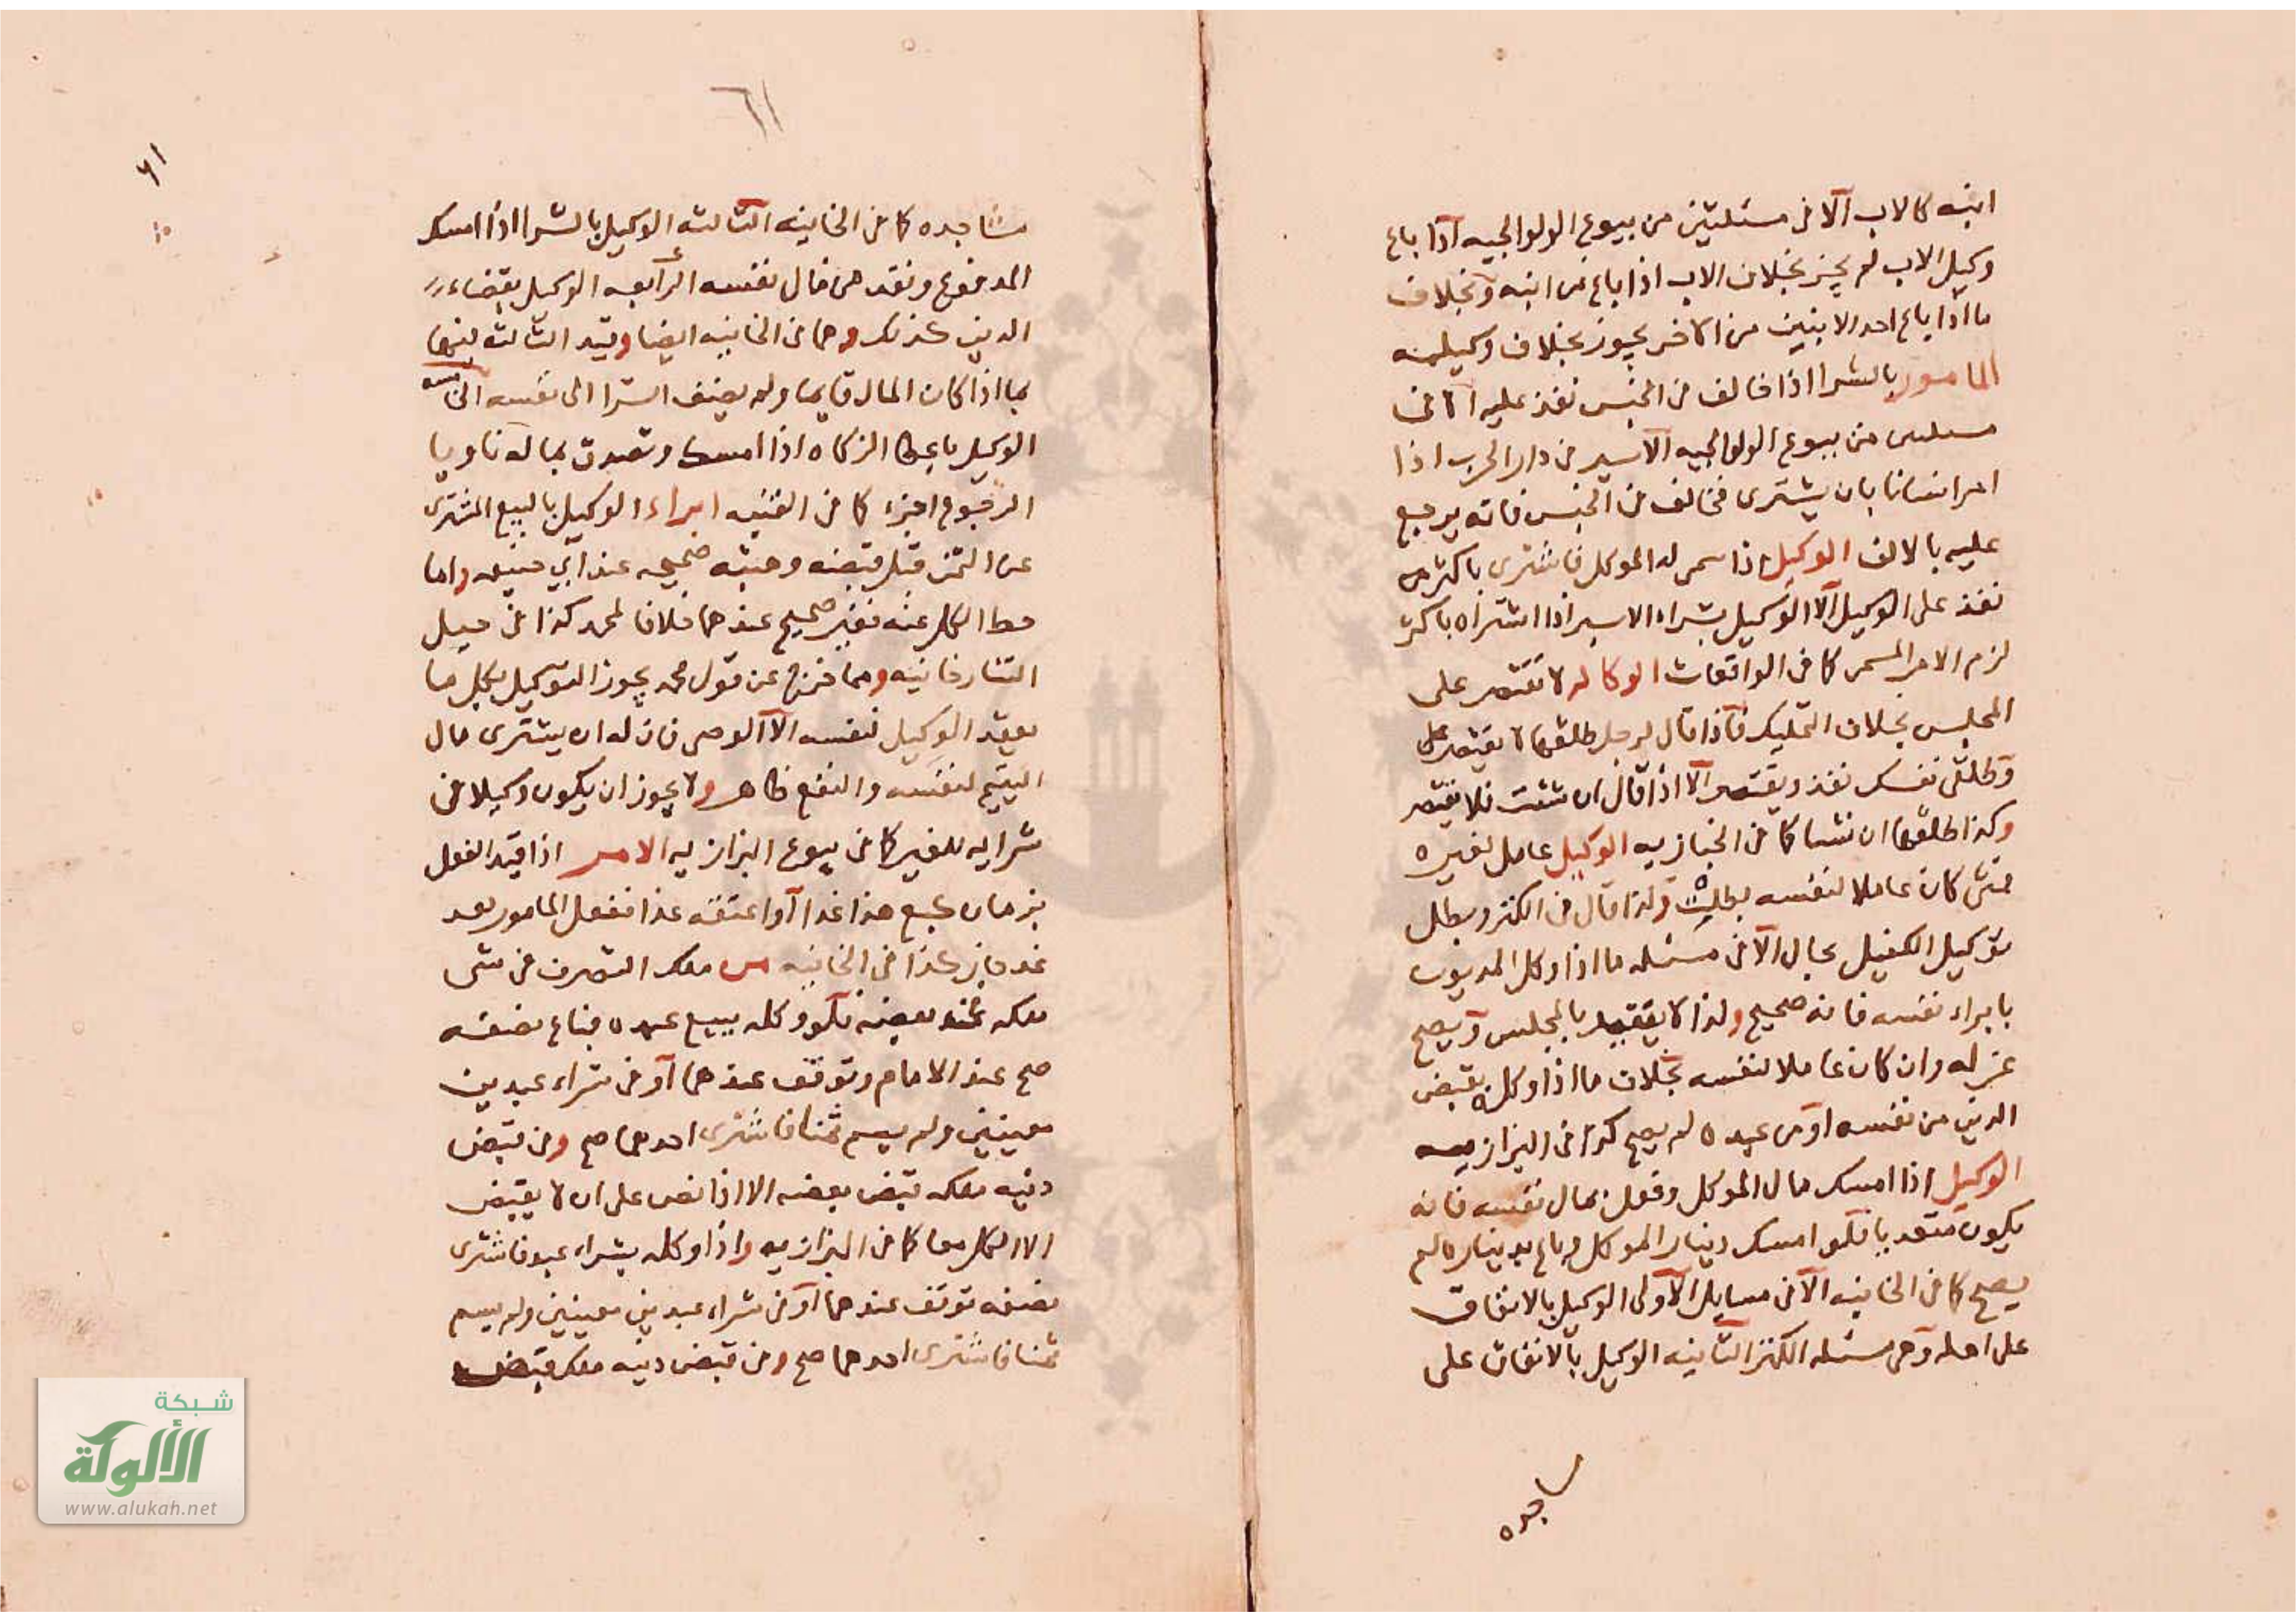 ابنه كالاب الا في مسئلتين من بيوع الولوالجيه اذا باع
وكيل الاب لم يجز بخلاف الاب اذا باع من ابنه وبخلاف
ما اذا باع احد الابنين من الاخر يجوز بخلاف وكيلهمنه
المامور بالشرا اذا خالف في الجنس نفذ عليه الا في
مسئلتين من بيوع الولوالجيه الاسير في دار الحرب اذا
امر انسانا بان يشترى فخالف في الجنس فانه يرجع
عليه بالالف الوكيل اذا سمى له الموكل فاشترى باكثر من
نفذ على الوكيل الا الوكيل بشراء الاسير اذا اشتراه باكثر
لزم الامر المسمى كما في الواقعات الوكاله لا تقتصر على
المجلس بخلاف التمليك فاذا قال لرجل طلقها لا يقتصر على
وطلقى نفسك نفذ ويقتصر الا اذا قال ان شئت فلا يقتصر
وكذا طلقها ان شا كما في الخبازيه الوكيل عامل لغيره
فمتى كان عاملا لنفسه بطلت ولذا قال في الكنز وبطل
توكيل الكفيل بمال الا في مسئله ما اذا وكل المديون
بابراء نفسه فانه صحيح ولذا لا يتقيد بالمجلس ويصح
عزله وان كان عاملا لنفسه بخلاف ما اذا وكله بقبض
الدين من نفسه او من عبده لم يصح كذا في البزازيه
الوكيل اذا امسك مال الموكل وفعل بمال نفسه فانه
يكون متعديا فلو امسك دينار الموكل وباع بديناره لم
يصح كما في الخانيه الا في مسايل الاولى الوكيل بالانفاق
على اهله وهى مسئله الكنز الثانيه الوكيل بالانفاق على
ساجده
٦١
٦١
مساجده كما في الخانيه الثالثه الوكيل بالشرا اذا امسك
المدفوع ونقد من مال نفسه الرابعه الوكيل بقضاء
الدين كذلك وهما في الخانيه ايضا وقيد الثالثه فيها
بما اذا كان المال قايما ولم يضف الشرا الى نفسه الخامسه
الوكيل باعطا الزكاه اذا امسك وتصدق بماله ناويا
الرجوع اجزاء كما في القنيه ابراء الوكيل بالبيع المشترى
عن الثمن قبل قبضه وهبته صحيحه عند ابي حنيفه واما
حط الكل عنه فغير صحيح عندهما خلافا لمحمد كذا في حيل
التتارخانيه ومما خرج عن قول محمد يجوز التوكيل بكل ما
يعقد الوكيل لنفسه الا الوصى فان له ان يشترى مال
اليتيم لنفسه والنفع ظاهر ولا يجوز ان يكون وكيلا في
شرايه للغير كما في بيوع البزازيه الامر اذا قيد الفعل
بزمان كبع هذا غدا او اعتقه غدا ففعل المامور بعد
غد جاز كذا في الخانيه من ملك التصرف في شى
ملكه في بعضه فلو وكله ببيع عبده فباع نصفه
صح عند الامام وتوقف عندهما او في شراء عبدين
معينين ولم يسم ثمنا فاشترى احدهما صح وفي قبض
دينه ملك قبض بعضه الا اذا نص على ان لا يقبض
الا الكل معا كما في البزازيه واذا وكله بشراء عبد فاشترى
نصفه توقف عندهما او في شراء عبدين معينين ولم يسم
ثمنا فاشترى احدهما صح وفي قبض دينه ملك قبض
شبكة
الألوكة
www.alukah.net